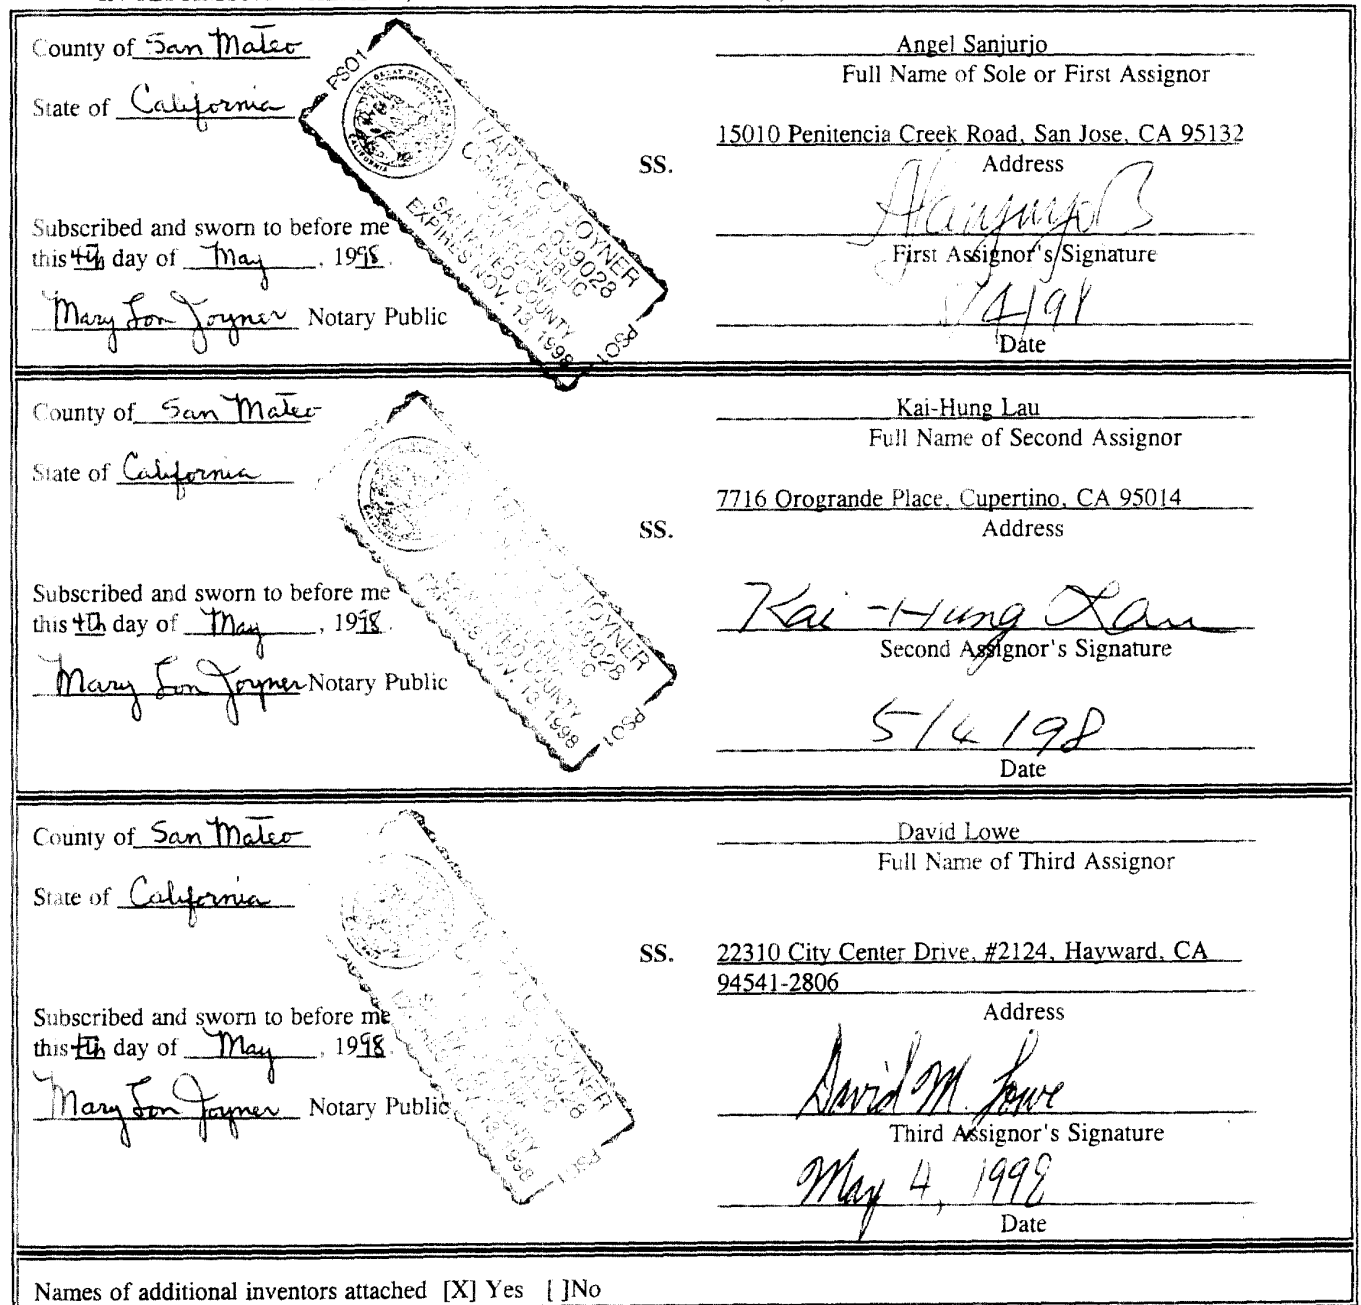 County of San Mateo
State of California
Subscribed and sworn to before me
this 4th day of May, 1998.
Mary Lou Joyner Notary Public
PSO1
MARY LOU JOYNER
COMM. # 1039028
NOTARY PUBLIC
CALIFORNIA
SAN MATEO COUNTY
EXPIRES NOV. 13, 1998
PSO1
SS.
Angel Sanjurjo
Full Name of Sole or First Assignor
15010 Penitencia Creek Road, San Jose, CA 95132
Address
First Assignor's Signature
Date
County of San Mateo
State of California
Subscribed and sworn to before me
this 4th day of May, 1998.
Mary Lou Joyner Notary Public
LOU JOYNER
1039028
COUNTY
NOV. 13, 1998
PSO1
SS.
Kai-Hung Lau
Full Name of Second Assignor
7716 Orogrande Place, Cupertino, CA 95014
Address
Kai-Hung Lau
Second Assignor's Signature
5/4/98
Date
County of San Mateo
State of California
Subscribed and sworn to before me
this 4th day of May, 1998.
Mary Lou Joyner Notary Public
JOYNER
39028
13, 1998
PSO1
SS.
David Lowe
Full Name of Third Assignor
22310 City Center Drive, #2124, Hayward, CA
94541-2806
Address
David M. Lowe
Third Assignor's Signature
May 4, 1998
Date
Names of additional inventors attached [X] Yes [ ]No